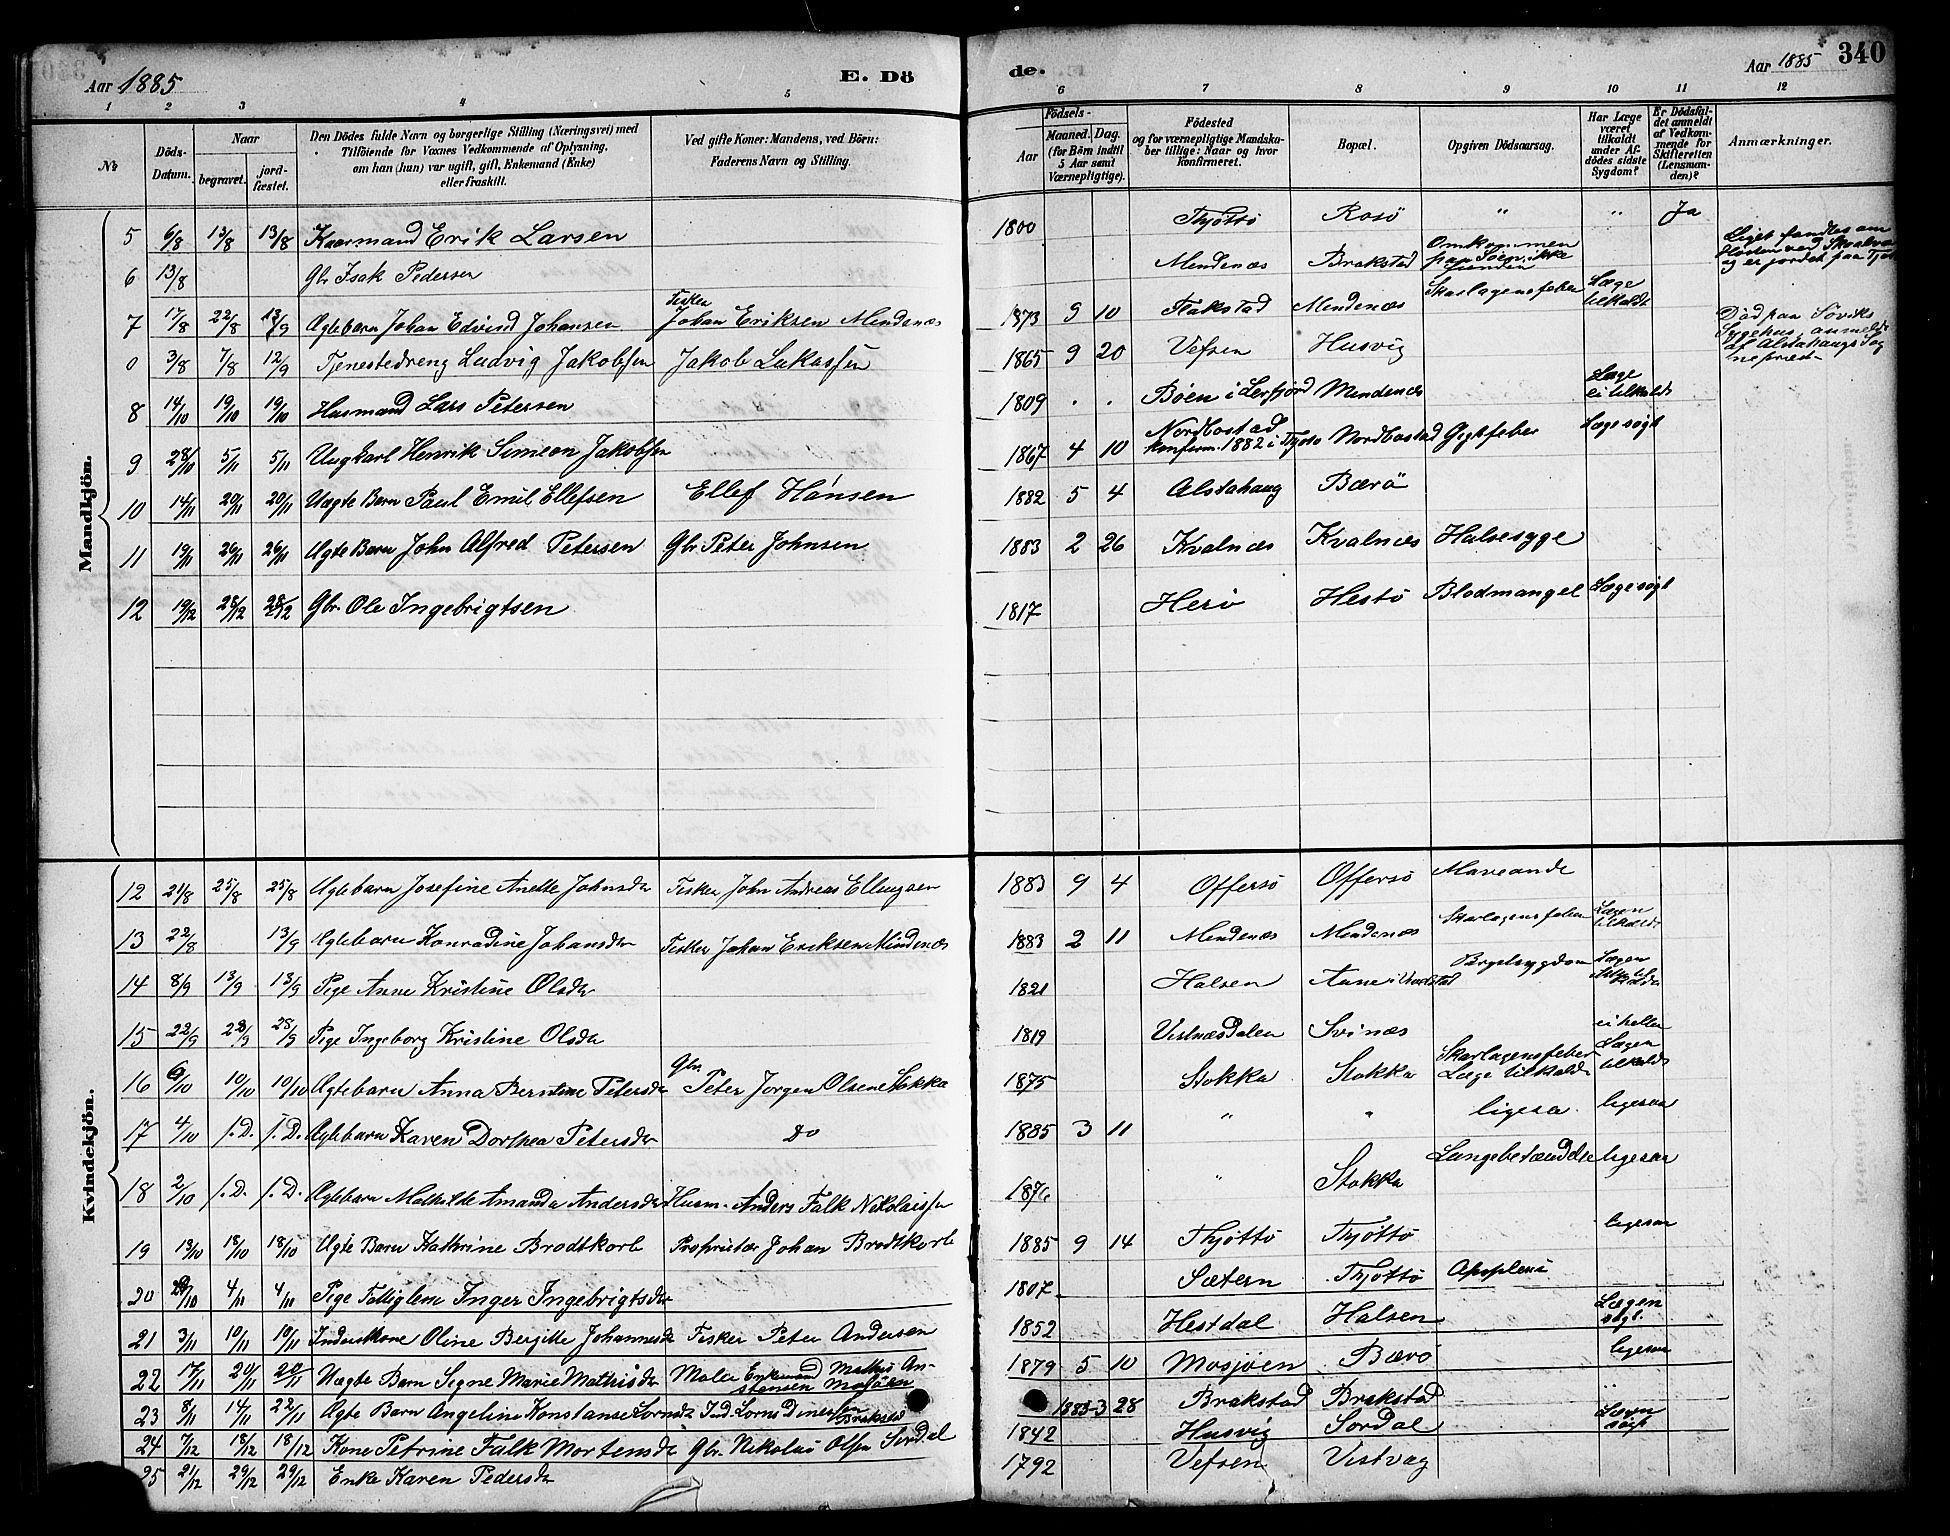 Aar 1885 E. Dö de. Aar 1885 340
1 2 3 4 5 6 7 8 9 10 11 12
№ Döds-Datum. Naar begravet. jordfæstet. Den Dödes fulde Navn og borgerlige Stilling (Næringsvei) med Tilföiende for Voxnes Vedkommende af Oplysning, om han (hun) var ugift, gift, Enkemand (Enke) eller fraskilt. Ved gifte Koner: Mandens, ved Börn: Faderens Navn og Stilling. Födsels- Aar Maaned. Dag. (for Börn indtil 5 Aar samt Værnepligtige). Födested og for værnepligtige Mandskaber tillige: Naar og hvor konfirmeret. Bopæl. Opgiven Dödsaarsag. Har Læge været tilkaldt under Afdödes sidste Sygdom? Er Dödsfaldet anmeldt af Vedkommende for Skifteretten (Lensmanden)? Anmærkninger.
Mandkjön.
5 6/8 13/8 13/8 Kaarmand Erik Larsen 1800 Thjöttö Rosö " " Ja
6 13/8 Gbr Isak Pedersen Mindenæs Brakstad Omkommen paa Söen, ikke funden Liget fandtes om Hösten ved og er jordet paa
7 17/8 22/8 13/9 Ægtebarn Johan Edvind Johansen Fisker Johan Eriksen Mindenæs 1873 9 10 Flakstad Mindenæs Skarlagensfeber Læge tilkaldt
0 3/8 7/8 12/9 Tjenestedreng Ludvig Jakobsen Jakob Lukassen 1865 9 20 Vefsen Husvig Död paa Söviks Sygehus, anmeldt af Alstahaugs Sognepræst
8 14/10 19/10 19/10 Husmand Lars Petersen 1809 . . Böen i Leirfjord Mindenæs Læge ei tilkaldt
9 28/10 5/11 5/11 Ungkarl Henrik Simeon Jakobsen 1867 4 10 Nordbostad konfirm. 1882 i Tjötö Nordbostad Gigtfeber Læge sögt
10 14/11 20/11 20/11 Uægte Barn Paul Emil Ellefsen Ellef Hansen 1882 5 4 Alstahaug Bærö
11 19/11 26/11 26/11 Ægte Barn John Alfred Petersen Gbr Peter Johnsen 1883 2 26 Kvalnæs Kvalnæs Halsesyge
12 19/12 28/12 28/12 Gbr. Ole Ingebrigtsen 1817 Herö Hestö Blodmangel Læge sögt
Kvindekjön.
12 21/8 25/8 25/8 Ægtebarn Josefine Anette Johnsdr Fisker John Andreas Ellingsen 1883 9 4 Offersö Offersö Maveonde
13 22/8 13/9 Ægtebarn Konradine Johansdr Fisker Johan Eriksen Mindenæs 1883 2 11 Mindenæs Mindenæs Skarlagensfeber Lægen tilkaldt
14 8/9 13/9 13/9 Pige Anne Kristine Olsdr 1821 Halsen Brystsygdom Lægen
15 22/9 28/9 28/9 Pige Ingeborg Kristine Olsdr 1819 Vistnæsdalen Svinæs ei heller
16 6/10 10/10 10/10 Ægtebarn Anna Berntine Petersdr Gbr. Peter Jörgen Olsen Stokka 1875 Stokka Stokka Skarlagensfeber Læge tilkaldt Lægen tilkaldt
17 4/10 s.D. s.D. Ægtebarn Karen Dorthea Petersdr Do 1885 3 11 " " ligesa. ligesaa
18 2/10 s.D. s.D. Ægtebarn Mathilde Amanda Andersdr Husm. Anders Falk Nikolaissen 1876 " Stokka Lungebetændelse ligesaa
19 13/10 18/10 18/10 Ægte Barn Kathrine Brodtkorb Proprietær Johan Brodtkorb 1885 9 14 Thjöttö Thjöttö ligesaa
20 4/11 4/11 Pige Fattiglem Inger Ingebrigtsdr 1807 Sætern Thjöttö Apoplexi
21 3/11 10/11 10/11 Inderstkone Oline Bergitte Johannesdr Fisker Peter Andersen 1852 Hestdal Halsen Lægen sögt.
22 17/11 20/11 20/11 Uægte Barn Signe Marie Mathisdr Maler Enkemand Mathis Anstensen Mosjöen 1879 5 10 Mosjöen Bærö ligesaa
23 8/11 14/11 22/11 Ægte Barn Angeline Konstanse Lornsdr Ind. Lorns Dinessen Brakstad 1883 3 28 Brakstad Brakstad "
24 7/12 18/12 18/12 Kone Petrine Falk Mortensdr Gbr. Nikolai Olsen Sördal 1842 Husvig Sördal Lægen sögt
25 21/12 29/12 29/12 Enke Karen Pedersdr 1792 Vefsen Vistvag